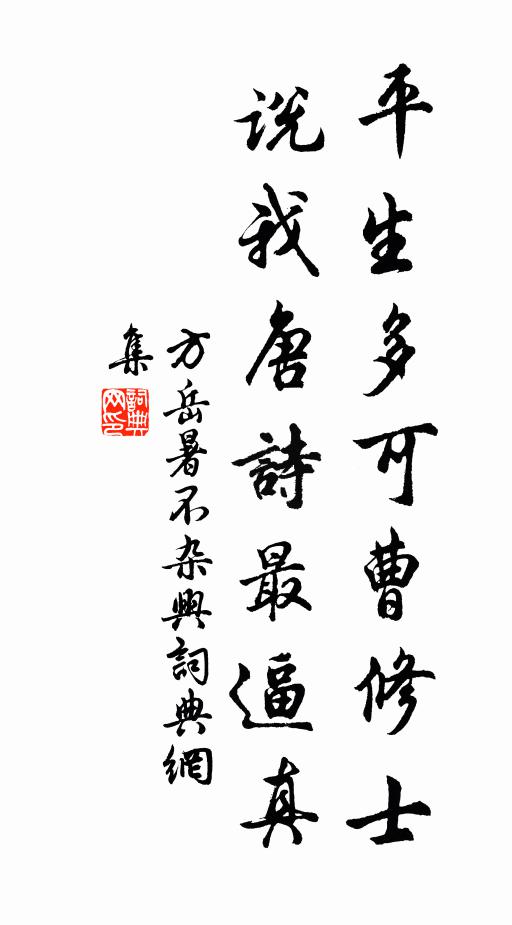 平生多可曹修士
説我唐詩最逼真
方岳暑不杂興詞典網
集
詞典網印